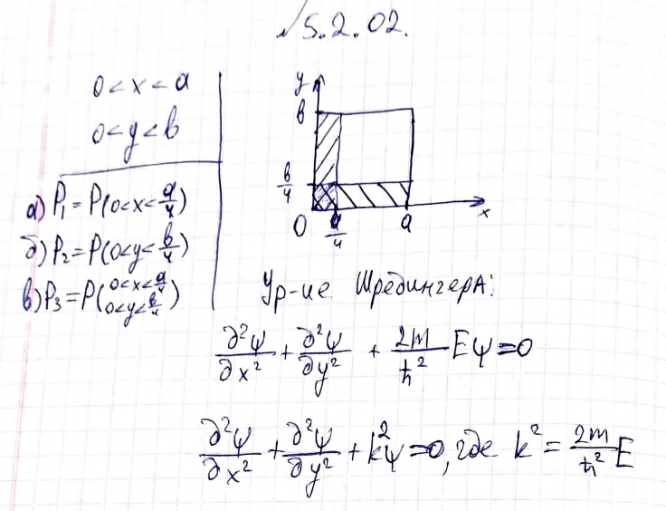 №5.2.02.
0<x<a
0<y<b
а) P₁=P(0<x<a/4)
б) P₂=P(0<y<b/4)
в) P₃=P(0<x<a/4 0<y<b/4)
y
b
b/4
0 a/4 a x
Ур-ие Шредингера:
∂²ψ/∂x² + ∂²ψ/∂y² + 2m/ħ² Eψ=0
∂²ψ/∂x² + ∂²ψ/∂y² + k²ψ=0, где k²=2m/ħ² E